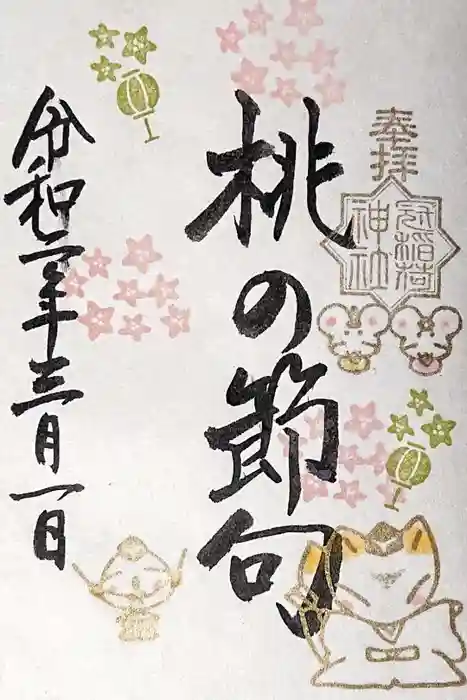 奉拝
冠稲荷
神社
桃の節句
令和二年三月一日